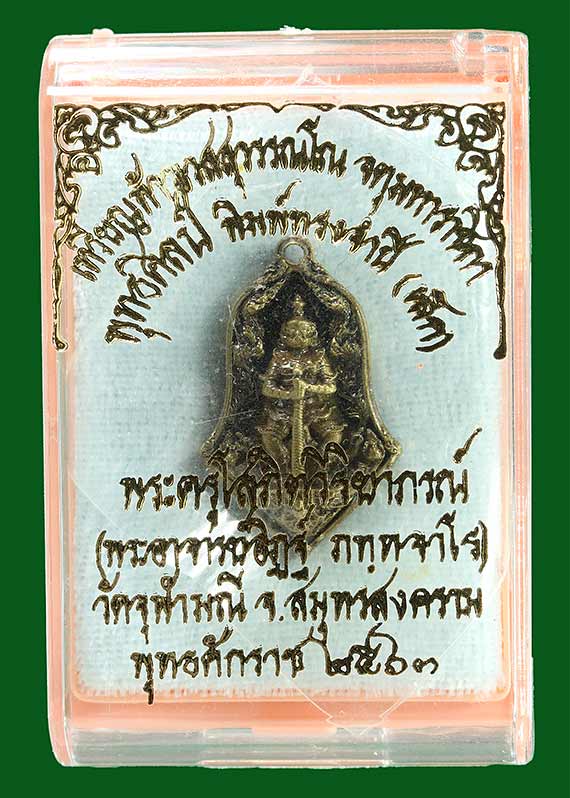 เหรียญท้าวเวสสุวรรณโณ จตุมหาราชิกา
พุทธศิลป์ พิมพ์ทรงจำปี (เล็ก)
พระครูโสภิตวิริยาภรณ์
(พระอาจารย์อิฏฐ์ ภทฺทจาโร)
วัดจุฬามณี จ.สมุทรสงคราม
พุทธศักราช ๒๕๖๓